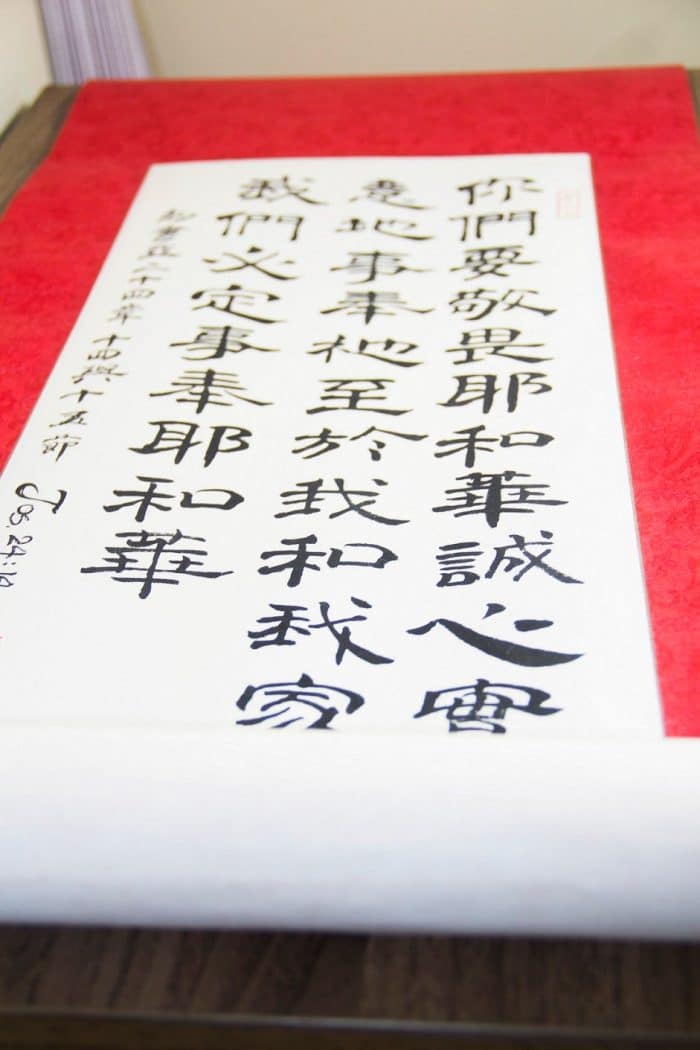 你們要敬畏耶和華誠心實
意地事奉祂至於我和我家
我們必定事奉耶和華
約書亞二十四章 十四 十五節 Jos. 24:14